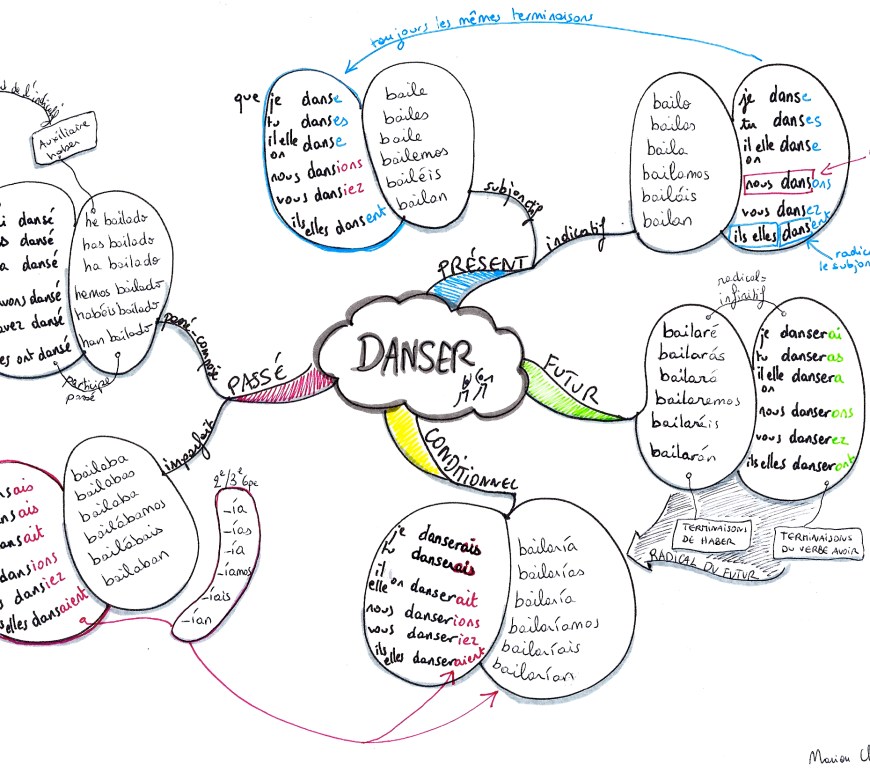 toujours les mêmes terminaisons
que je danse
tu danses
il elle danse
on
nous dansions
vous dansiez
ils elles dansent
baile
bailes
baile
bailemos
bailéis
bailan
subjonctif
indicatif
PRÉSENT
bailo
bailas
baila
bailamos
bailáis
bailan
je danse
tu danses
il elle danse
on
nous dansons
vous dansez
ils elles dansent
le subjon
Auxiliaire
haber
dansé
dansé
a dansé
avons dansé
avez dansé
ont dansé
he bailado
has bailado
ha bailado
hemos bailado
habéis bailado
han bailado
participe
passé
passé-composé
PASSÉ
imparfait
DANSER
FUTUR
radical =
infinitif
bailaré
bailarás
bailará
bailaremos
bailaréis
bailarán
je danserai
tu danseras
il elle dansera
on
nous danserons
vous danserez
ils elles danseront
TERMINAISONS
DE HABER
TERMINAISONS
DU VERBE AVOIR
RADICAL DU FUTUR
CONDITIONNEL
je danserais
tu danserais
il
elle on danserait
nous danserions
vous danseriez
ils
elles danseraient
bailaría
bailarías
bailaría
bailaríamos
bailaríais
bailarían
nsais
nsais
ansait
dansions
dansiez
elles dansaient
bailaba
bailabas
bailaba
bailábamos
bailábais
bailaban
2e/3e gpe
-ía
-ías
-ía
-íamos
-íais
-ían
Marion